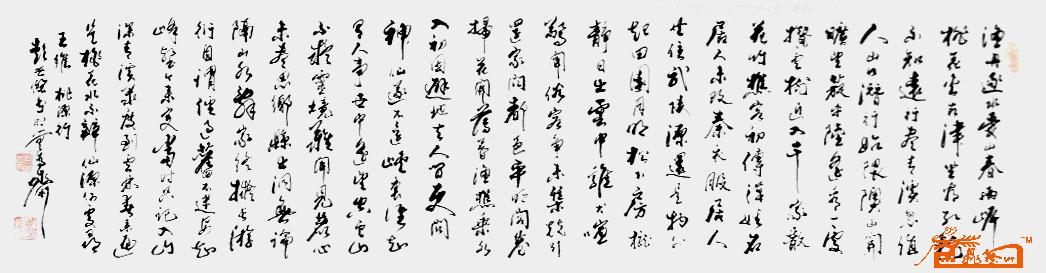 渔舟逐水爱山春两岸
桃花夹古津坐看红树
不知远行尽青溪忽值
人山口潜行始隈隩山开
旷望旋平陆遥看一处
攒云树近入千家散
花竹樵客初传汉姓名
居人未改秦衣服居人
共住武陵源还从物外
起田园月明松下房栊
静日出云中鸡犬喧
惊闻俗客争来集竞引
还家问都邑平明闾巷
扫花开薄暮渔樵乘水
入初因避地去人间更问
神仙遂不还峡里谁知
有人事世中遥望空云山
不疑灵境难闻见尘心
未尽思乡县出洞无论
隔山水辞家终拟长游
衍自谓经过旧不迷安知
峰壑今来变当时只记入山
深青溪几度到云林春来遍
是桃花水不辨仙源何处寻
王维桃源行